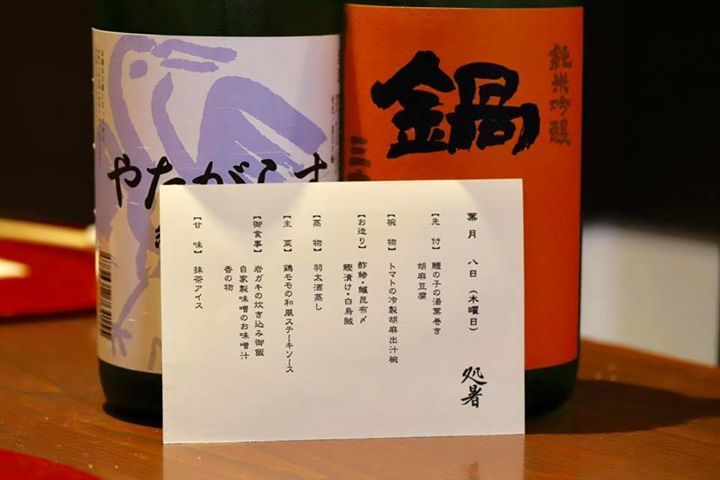 やたがらす
鍋
純米吟醸
葉月 八日（木曜日）
処暑
【先 付】 鱧の子の湯葉巻き
胡麻豆腐
【椀 物】 トマトの冷製胡麻出汁椀
【お造り】 酢鯵・鱸昆布〆
鰹漬け・白烏賊
【蒸 物】 羽太酒蒸し
【主 菜】 鶏モモの和風ステーキソース
【御食事】 岩ガキの炊き込み御飯
自家製味噌のお味噌汁
香の物
【甘 味】 抹茶アイス